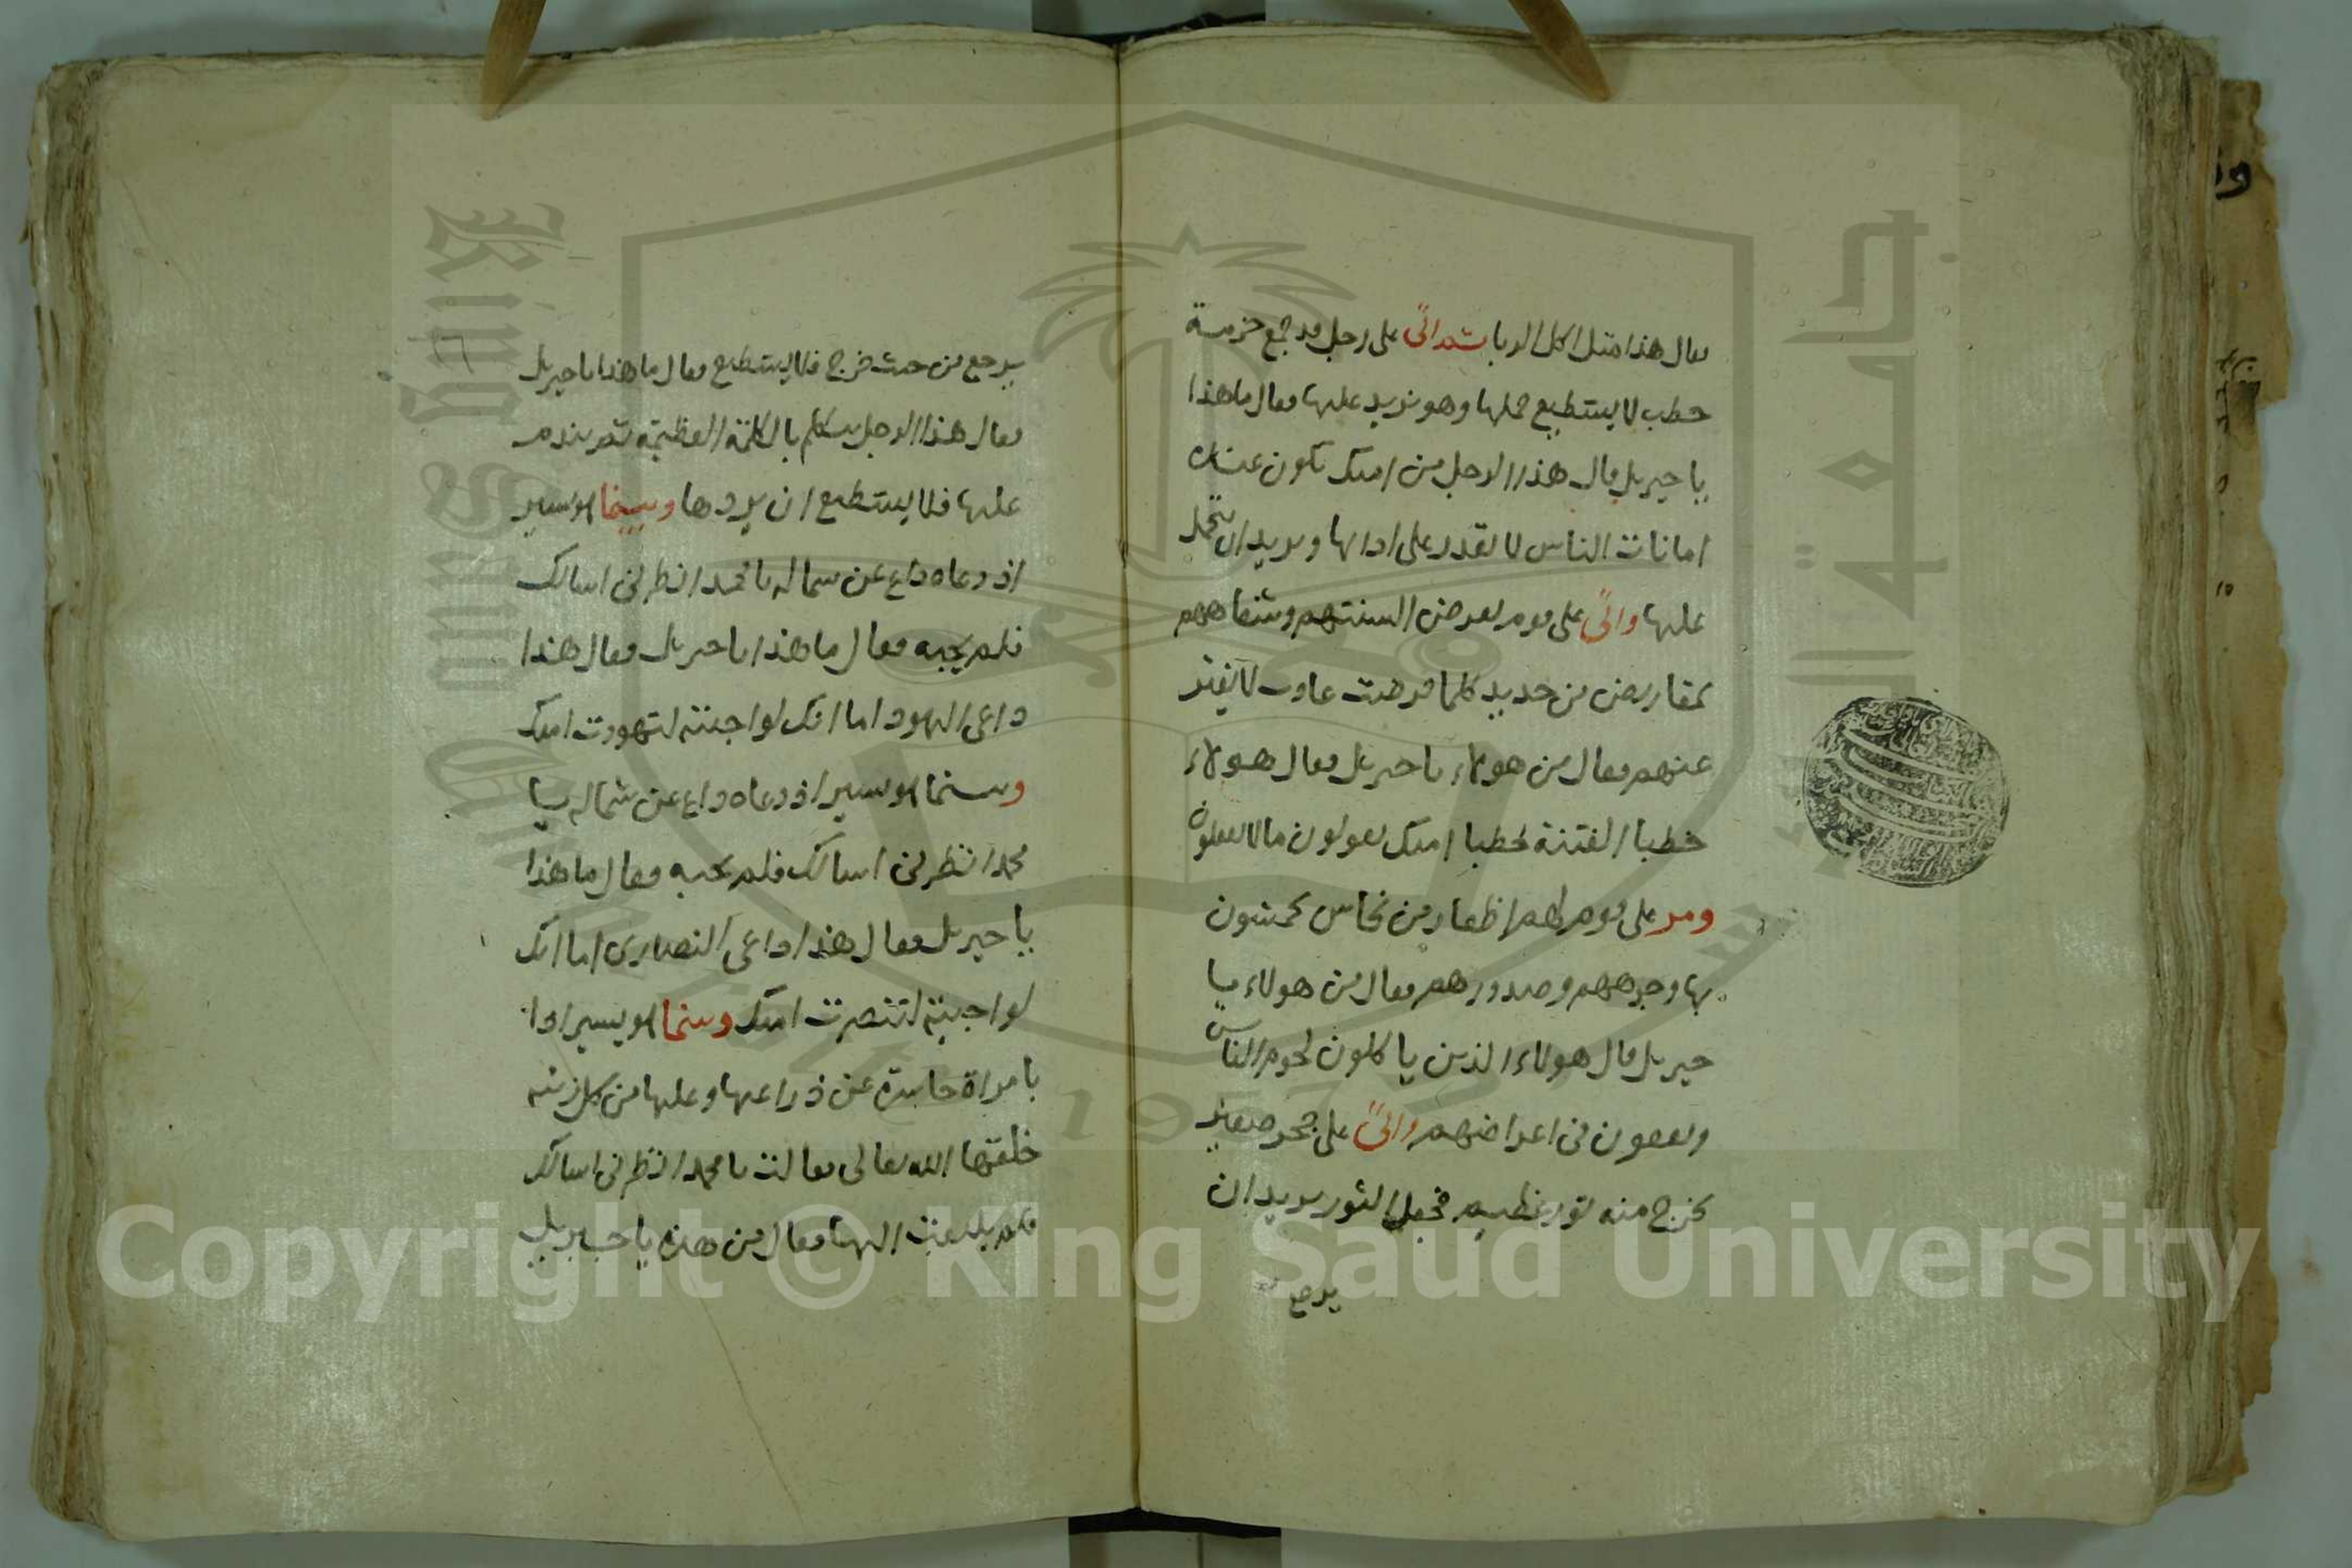 فقال هذا مثل اكل الربا ثم اتى على رجل قد جمع حزمة
حطب لا يستطيع حملها وهو يزيد عليها فقال ما هذا
يا جبريل قال هذا الرجل من امتك تكون عنده
امانات الناس لا يقدر على ادائها ويريد ان يتحمل
عليها واتى على قوم تقرض السنتهم وشفاههم
بمقاريض من حديد كلما قرضت عادت لا يفتر
عنهم فقال من هولاء يا جبريل فقال هولاء
خطبا الفتنة خطبا امتك يقولون ما لا يفعلون
ومر على قوم لهم اظفار من نحاس يخمشون
بها وجوههم وصدورهم فقال من هولاء يا
جبريل قال هولاء الذين ياكلون لحوم الناس
ويقعون في اعراضهم واتى على جحر صغير
يخرج منه ثور عظيم فجعل الثور يريد ان
يرجع
يرجع من حيث خرج فلا يستطيع فقال ما هذا يا جبريل
فقال هذا الرجل يتكلم بالكلمة العظيمة ثم يندم
عليها فلا يستطيع ان يردها وبينما هو يسير
اذ دعاه داع عن شماله يا محمد انظرني اسالك
فلم يجبه فقال ما هذا يا جبريل فقال هذا
داعي اليهود اما انك لو اجبته لتهودت امتك
وبينما هو يسير اذ دعاه داع عن شماله يا
محمد انظرني اسالك فلم يجبه فقال ما هذا
يا جبريل فقال هذا داعي النصارى اما انك
لو اجبته لتنصرت امتك وبينما هو يسير اذا
بامراة حاسرة عن ذراعيها وعليها من كل زينه
خلقها الله تعالى فقالت يا محمد انظرني اسالك
فلم يلتفت اليها فقال من هذه يا جبريل
جامعة الملك سعود
King Saud University
1957
Copyright © King Saud University